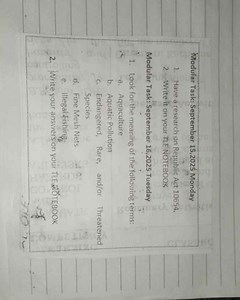 Modular Task: September 15,2025 Monday
1 Have a research on Republic Act 10654.
2 Write it on your TLE NOTEBOOK
Modular Task: September 16,2025 Tuesday
1. Look for the meaning of the following terms:
a. Aquaculture
b. Aquatic Pollution
c. Endangered, Rare, and/or Threatened
Species
d. Fine Mesh Nets
e. Illegal Fishing
2. Write your answers on your TLE NOTEBOOK